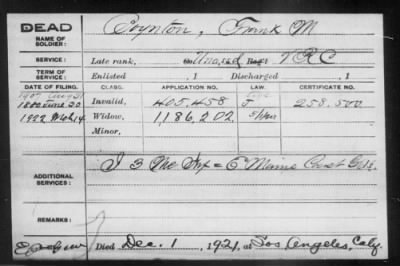 DEAD
NAME OF SOLDIER: Coynton, Frank M
SERVICE: Late rank, Unasd V R C
TERM OF SERVICE: Enlisted , 1 Discharged , 1
DATE OF FILING. CLASS. APPLICATION NO. LAW. CERTIFICATE NO.
1880 June 22 Invalid, 405,458 258,500
1922 Mch 14 Widow, 1,186,202
Minor,
ADDITIONAL SERVICES: I 3 Me Inf & 6" Maine Coast Gds.
REMARKS:
Died Dec. 1, 1921, at Los Angeles, Caly.